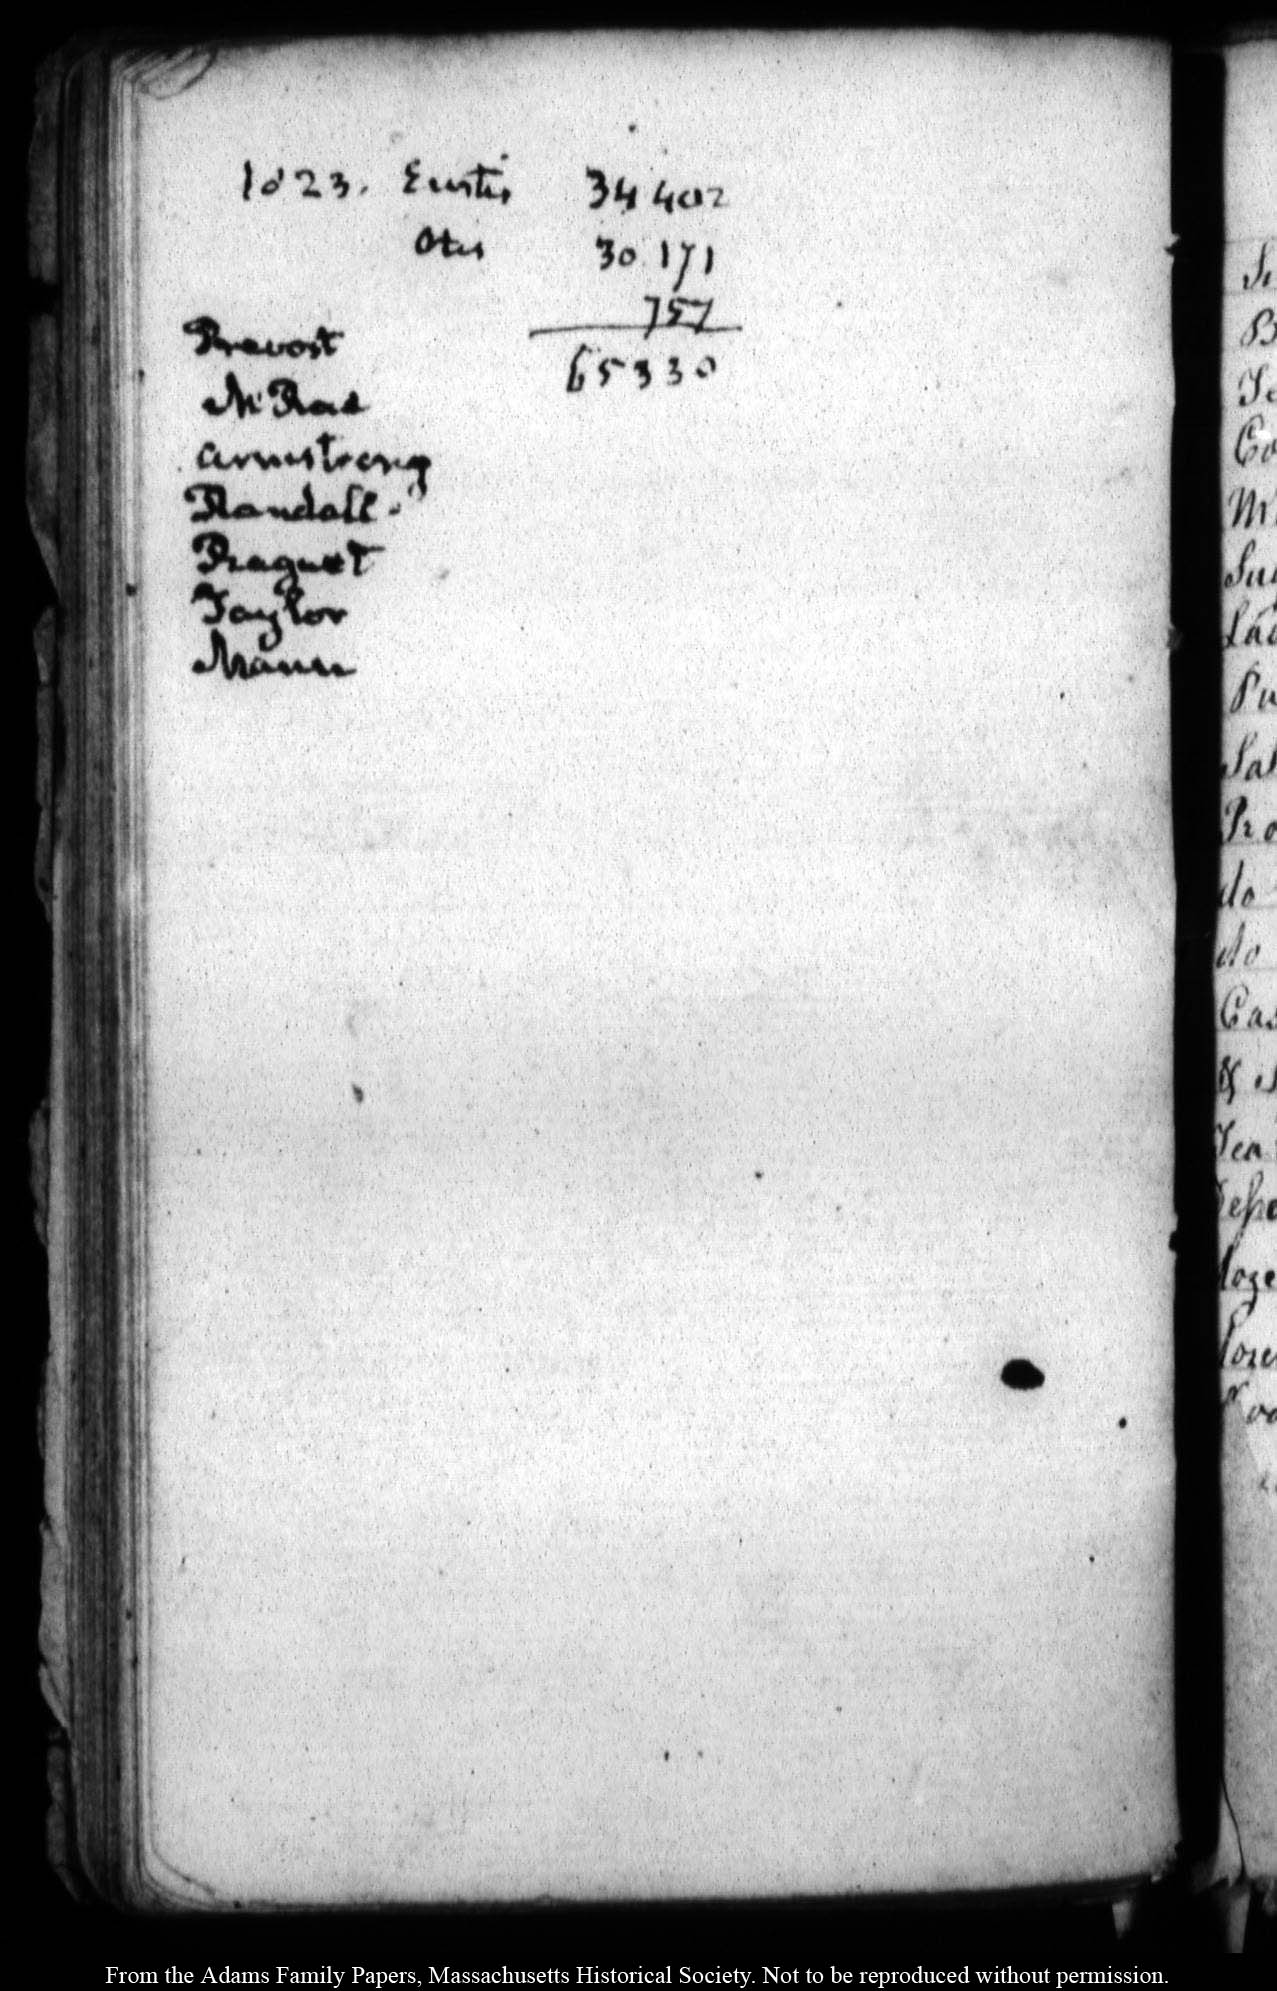 1823. Eustis 34 402
Otis 30.171
757
65330
Prevost
McRae
Armstrong
Randall.
Raguet
Taylor
Mann
Co
Mr
Lad
Pu
Sal
Pro
do
do
Cas
Tea
From the Adams Family Papers, Massachusetts Historical Society. Not to be reproduced without permission.